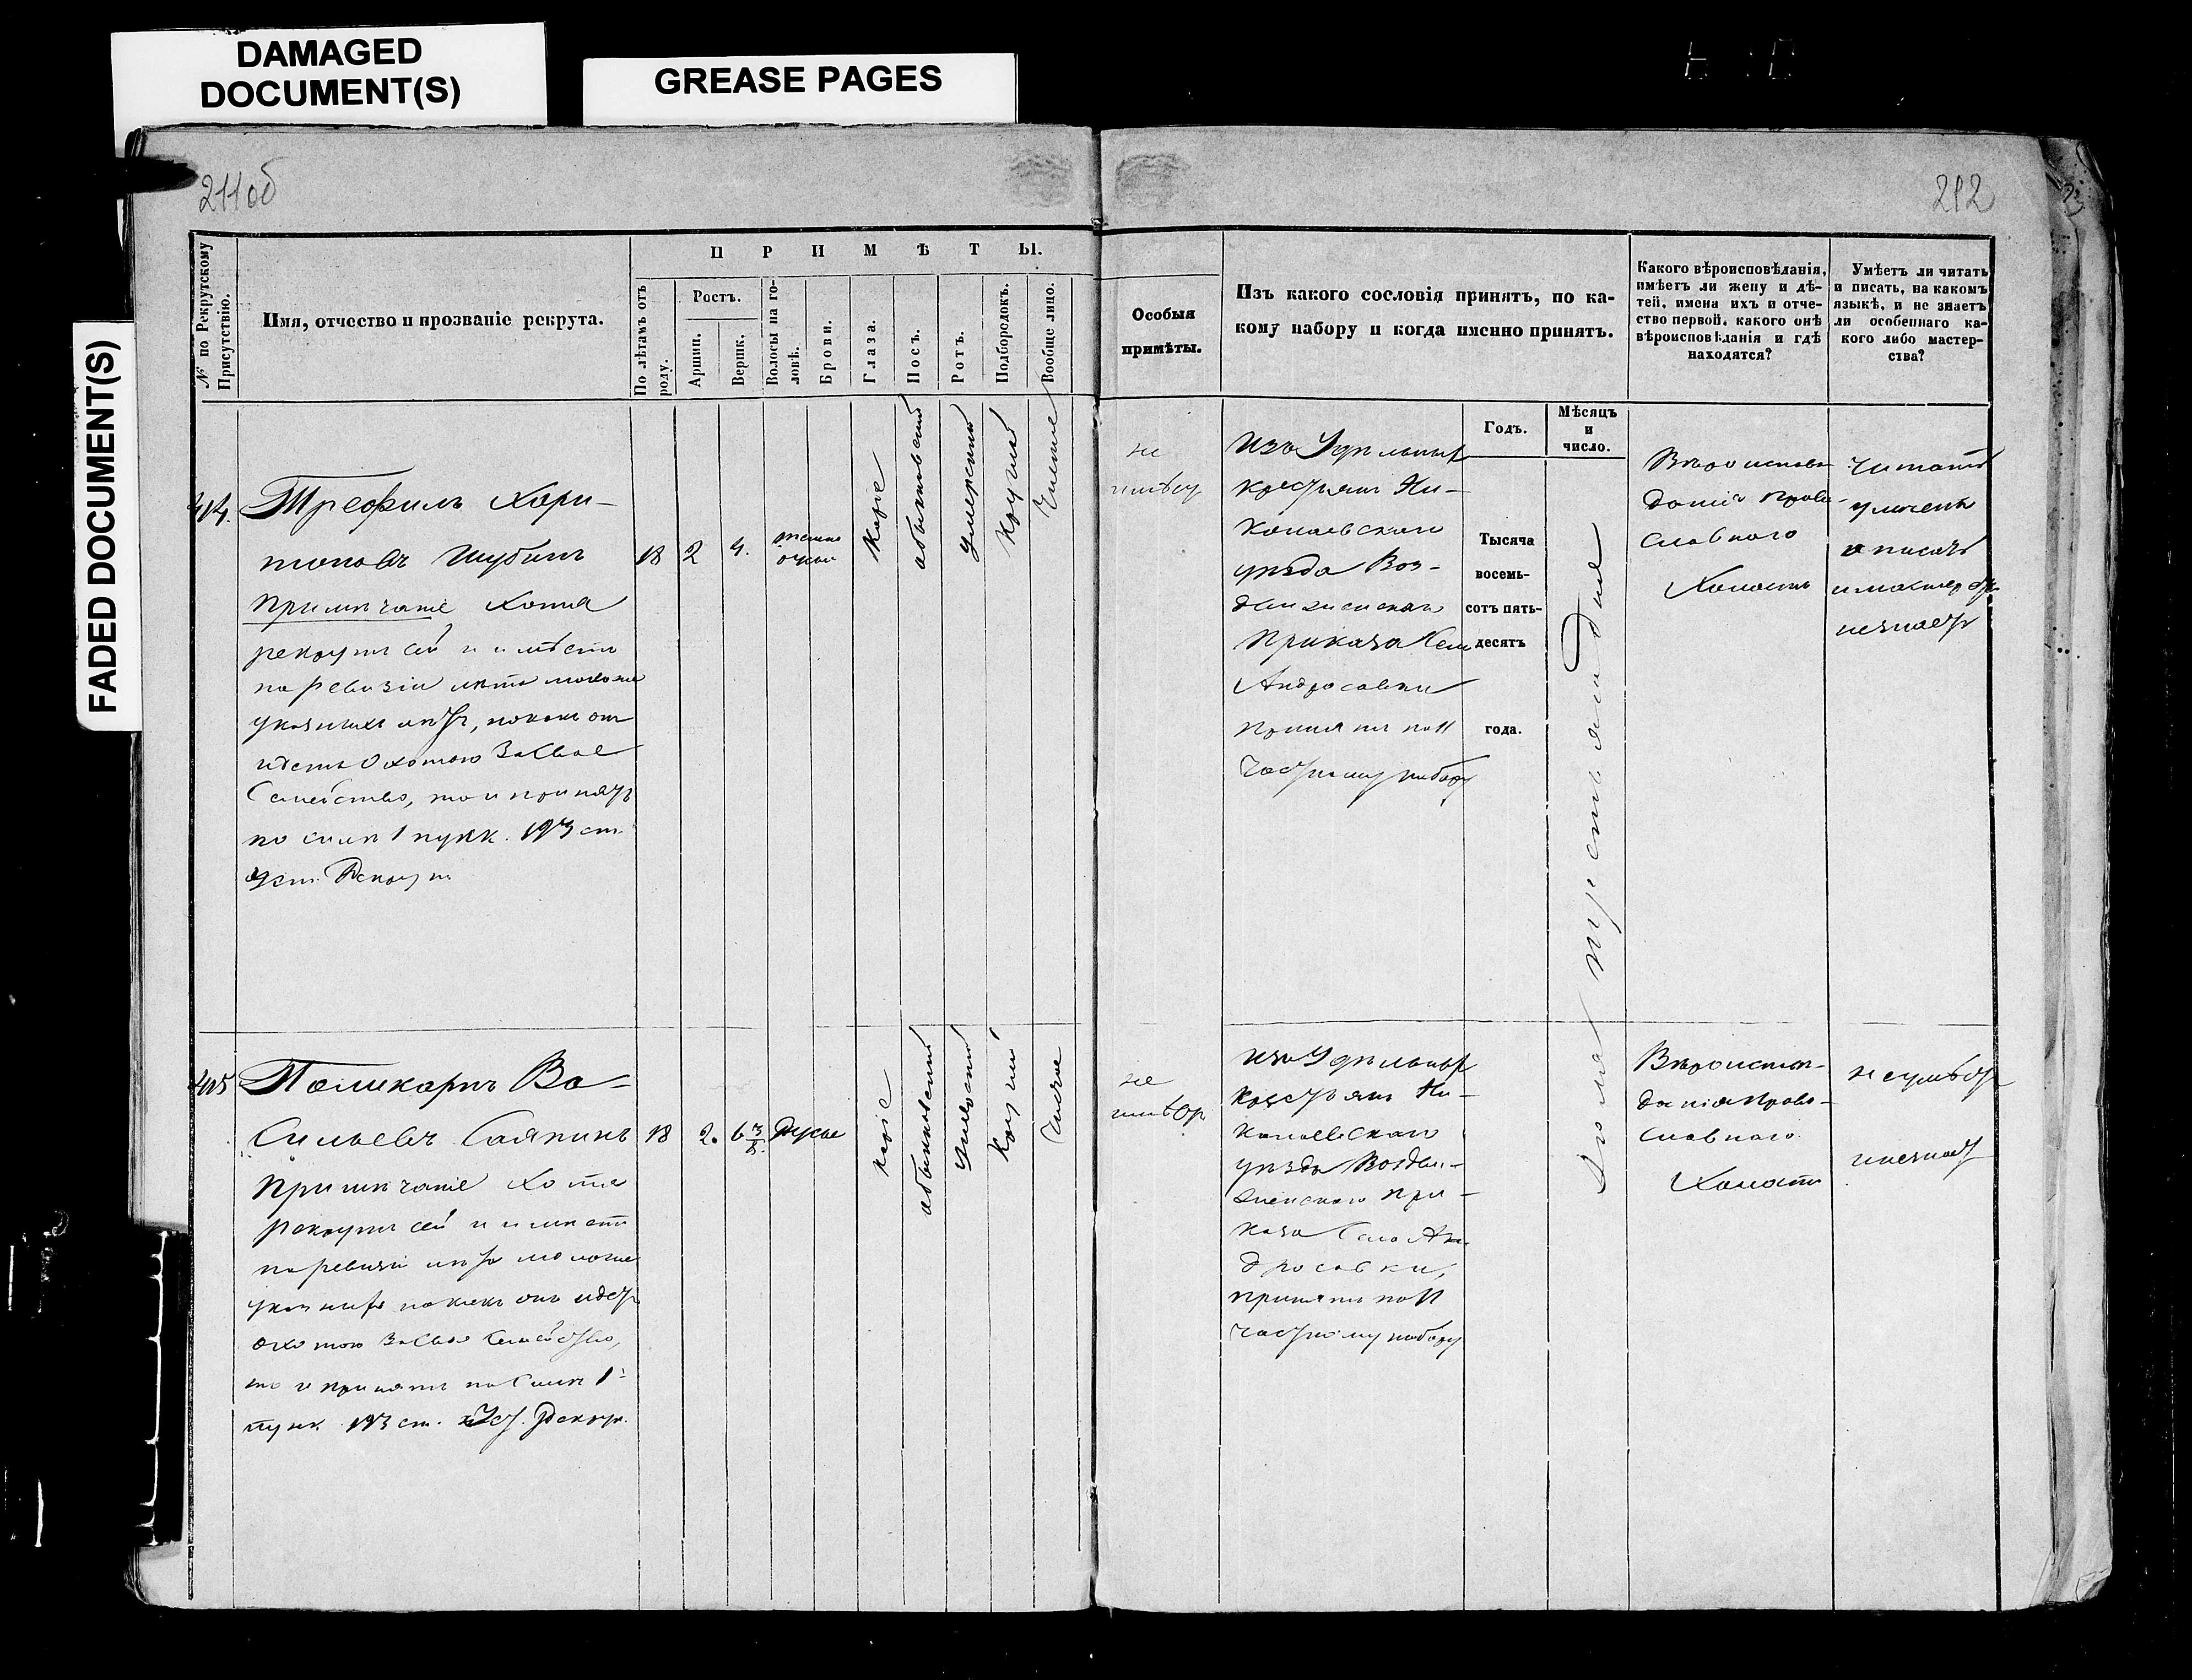 DAMAGED
DOCUMENT(S)
GREASE PAGES
FADED DOCUMENT(S)
211об
212
№ по Рекрутскому
Присутствію.
Имя, отчество и прозваніе рекрута.
П Р И М Ѣ Т Ы.
По лѣтамъ отъ
роду.
Ростъ.
Аршин.
Вершк.
Волосы на го-
ловѣ.
Брови.
Глаза.
Носъ.
Ротъ.
Подбородокъ.
Вообще лицо.
Особыя
примѣты.
Изъ какого сословія принятъ, по ка-
кому набору и когда именно принятъ.
Какого вѣроисповѣданія,
имѣетъ ли жену и дѣ-
тей, имена ихъ и отче-
ство первой, какого онѣ
вѣроисповѣданія и гдѣ
находятся?
Умѣетъ ли читать
и писать, на какомъ
языкѣ, и не знаетъ
ли особеннаго ка-
кого либо мастер-
ства?
Годъ.
Мѣсяцъ
и
число.
Тысяча
восемь-
сотъ пять-
десятъ
года.
404.
Трефилъ Хари-
тоновъ Шубинъ
Примѣчаніе Хотя
рекрутъ сей и имѣетъ
по ревизіи лѣта моложе
указныхъ лѣтъ, но какъ онъ
идетъ охотою за свое
Семейство, то и принятъ
по силѣ 1 пунк. 193 ст.
Уст. Рекрут.
18
2
4.
темно
русые
Каріе
обыкновенный
Умѣренный
Круглый
Чистое
не
имѣетъ
Изъ Удѣльныхъ
крестьянъ Ни-
колаевскаго
уѣзда Воз-
движенскаго
Приказа Села
Андросовки
принятъ по 11
частному набору
Вѣроисповѣ-
данія Право-
славнаго
Холостъ
Читать
умѣетъ
и писать
и мастерства
незнаетъ
405
Поликарпъ Ва-
сильевъ Саяпинъ
Примѣчаніе Хотя
рекрутъ сей и имѣетъ
по ревизіи лѣта моложе
указныхъ но какъ онъ идетъ
охотою за свое Семейство,
то и принятъ по силѣ 1
пунк. 193 ст. Уст. Рекрут.
18
2.
6 3/8
Русые
каріе
обыкновенный
Умѣренный
Круглый
Чистое
не
имѣетъ
Изъ Удѣльныхъ
крестьянъ Ни-
колаевскаго
уѣзда Воздви-
женскаго При-
каза Села Ан-
дросовки,
принятъ по 11
частному набору
Вѣроисповѣ-
данія Право-
славнаго
Холостъ
неумѣетъ
и незнаетъ